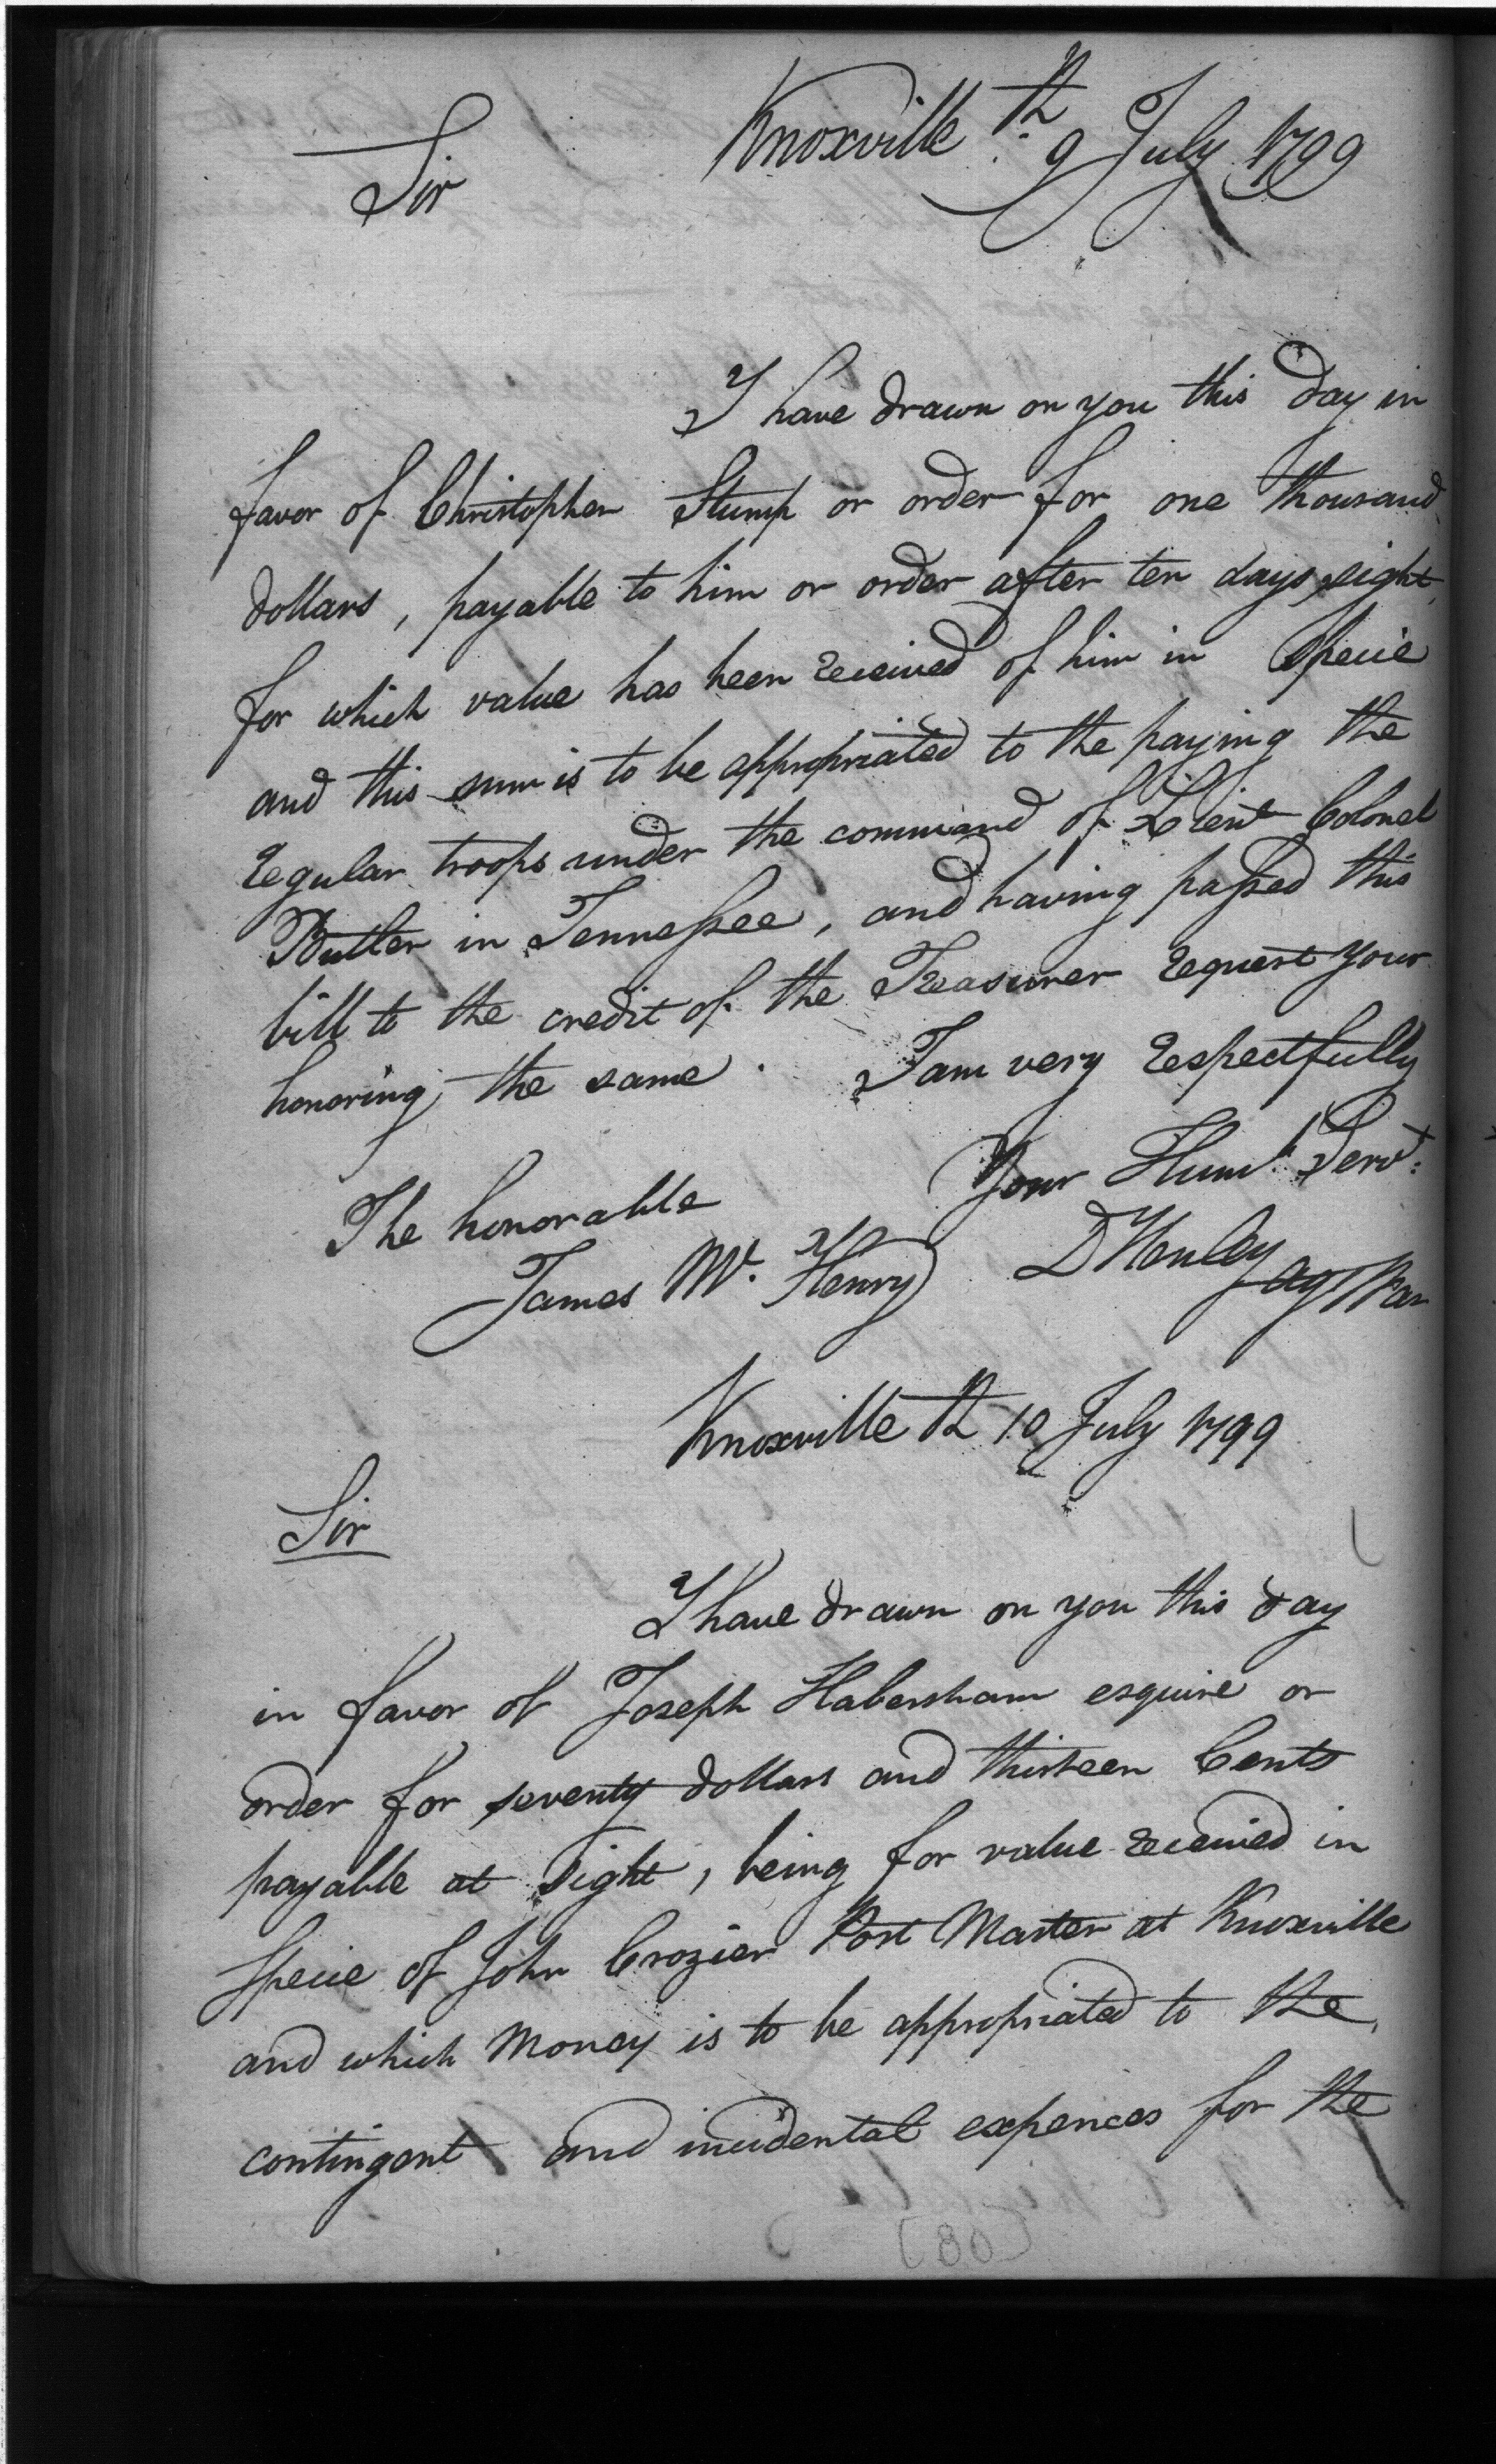 Knoxville th. 9 July 1799
Sir
I have drawn on you this day in
favor of Christopher Stump or order for one thousand
dollars, payable to him or order after ten days sight
for which value has been received of him in Specie
and this sum is to be appropriated to the paying the
regular troops under the command of Lieut Colonel
Butler in Tennessee, and having passed this
bill to the credit of the Treasurer request your
honoring the same. I am very respectfully
Your Humb. Servt:
The honorable
James Mc. Henry D Henley ag War
Knoxville th 10 July 1799
Sir
I have drawn on you this day
in favor of Joseph Habersham esquire or
order for seventy dollars and thirteen Cents
payable at sight, being for value received in
Specie of John Crozier Post Master at Knoxville
and which Money is to be appropriated to the
contingent and incidental expences for the
(80)